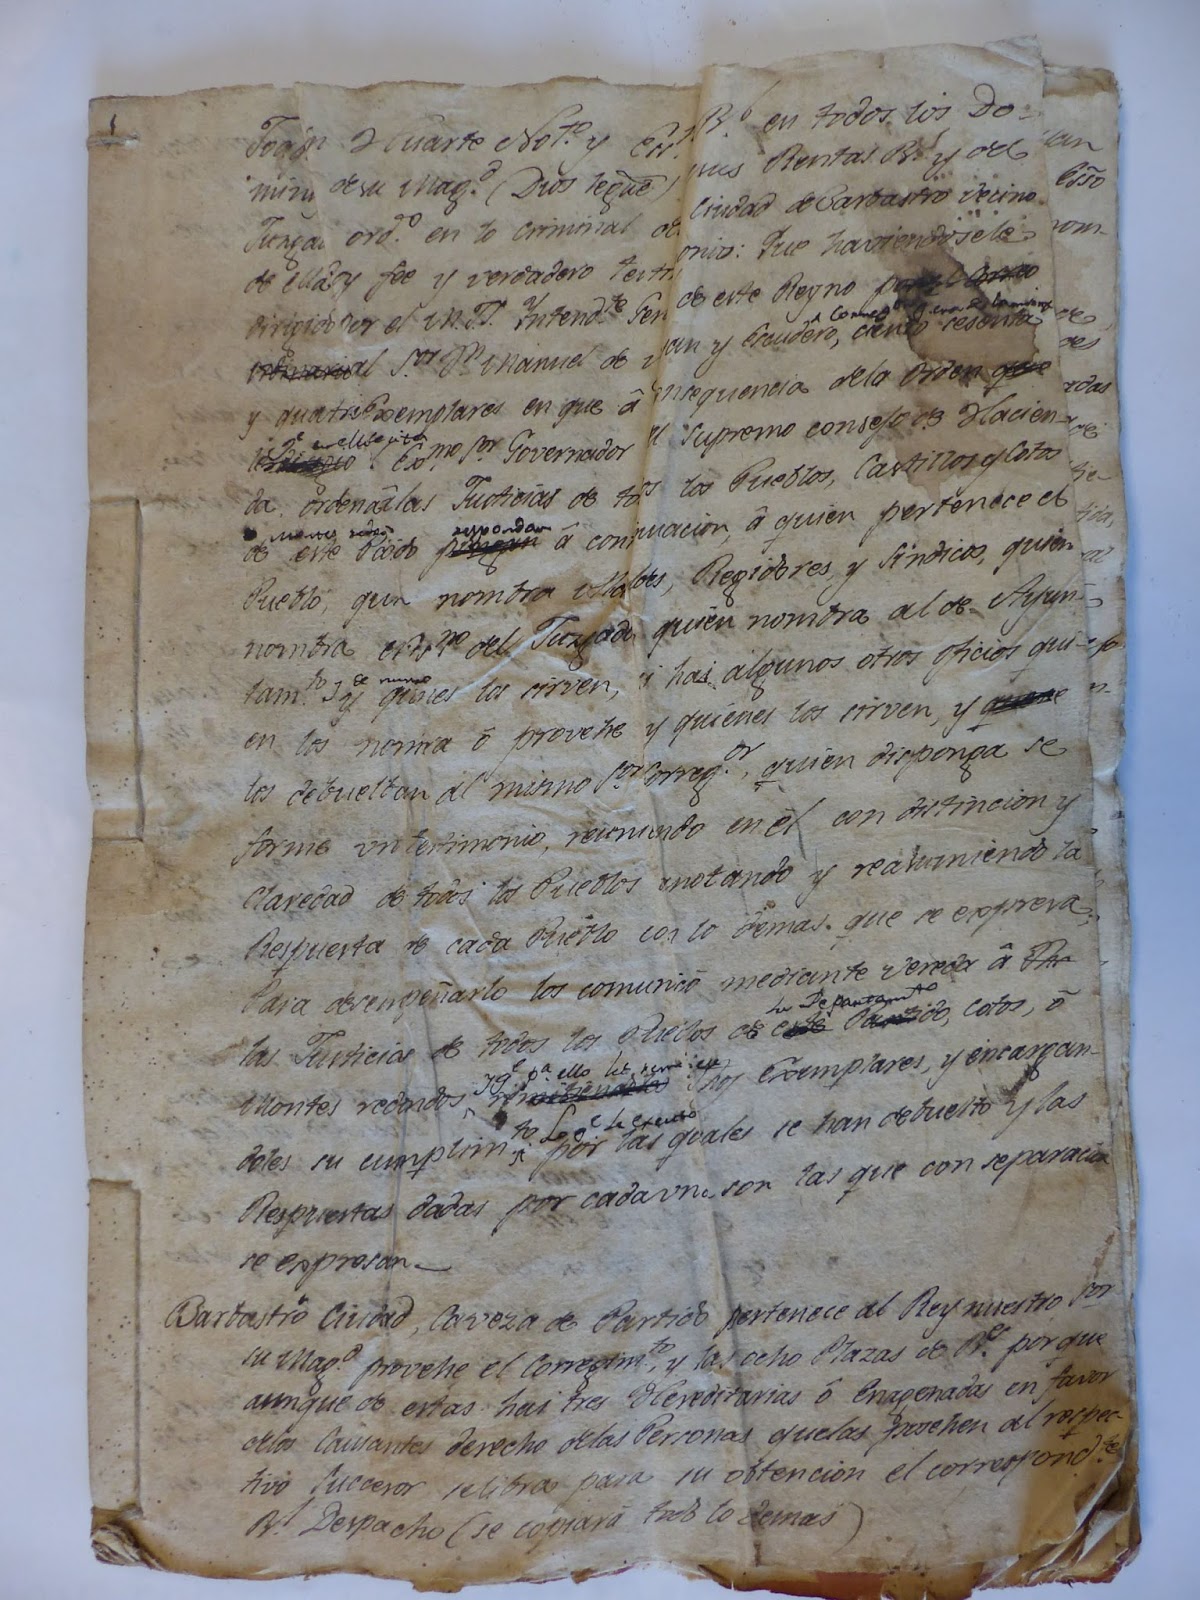 Joaqn Huarte Not.o y Ess.no R.l en todos los Do-
min de su Mag.d (Dios le gue) Rentas R.s y del
Juzga ord.o en lo Criminal de Ciudad de Barbastro vecino
de ella, doy fee y verdadero testi onio: Que haviendosele
dirigido por el M. I. S. Intend.te Gen de este Reyno
al S.or D.n Manuel de y Escudero, ciento sesenta
y quatro Exemplares en que â nsequencia de la Orden que
Ex.mo S.or Governador l Supremo consejo de Hacien-
da, ordena â las Justicias de tos los Pueblos, Castillos y Cotos
Montes redon respondan
de este Pdo pongan â continuacion, â quien pertenece el
Pueblo, quien nombra Alcaldes, Regidores, y Sindicos, quien
nombra el Ess.no del Juzgado quien nombra al de Ayun-
tam.to y de numo quienes los sirven, si hai algunos otros oficios qui-
en los nomra ô provehe y quienes los sirven, y
los debuelban al mismo S.or Correg.or, quien disponga se
forme un testimonio, reuniendo en êl con distincion y
claredad de todos los Pueblos anotando y reasumiendo la
Respuesta de cada Pueblo con lo demas que se expresa.
Para desempeñarlo los comunicô mediante Vereda â
las Justicias de todos los Pueblos de este Partido, cotos, ô
Montes redondos, y q.e p.a ello les remitiendo dhos Exemplares, y encargan-
doles su cumplim.to por las quales se han debuelto y las
Respuestas dadas por cada una son las que con separacion
se expresan
Barbastro Ciudad, Caveza de Partido pertenece al Rey nuestro S.or
su Mag.d provehe el Corregim.to, y las ocho Plazas de R.or porque
aunque de estas hai tres Hereditarias ô Enagenadas en favor
de los Causantes derecho de las Personas que las posehen al respec-
tivo succesor se libra para su obtencion el correspond.te
R.l Despacho (se copiarâ todo lo demas)